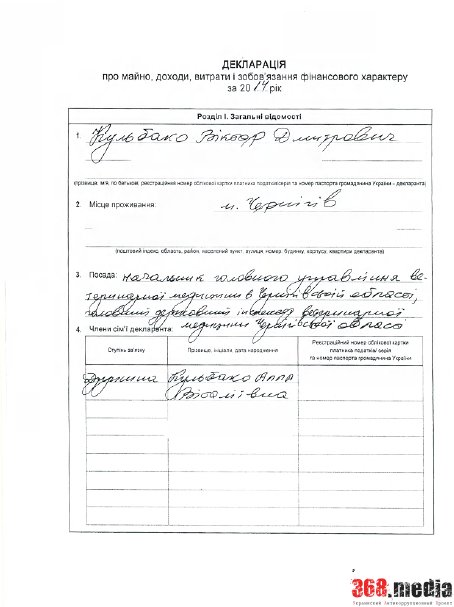 ДЕКЛАРАЦІЯ
про майно, доходи, витрати і зобов'язання фінансового характеру
за 2014 рік
Розділ І. Загальні відомості
1. Кульбако Віктор Дмитрович
(прізвище, ім'я, по батькові, реєстраційний номер облікової картки платника податків/серія та номер паспорта громадянина України - декларанта)
2. Місце проживання: м. Чернігів
(поштовий індекс, область, район, населений пункт, вулиця, номер: будинку, корпусу, квартири декларанта)
3. Посада: начальник головного управління ве-
теринарної медицини в Чернігівській області,
головний державний інспектор ветеринарної
медицини Чернігівської област
4. Члени сім'ї декларанта:
Ступінь зв'язку
Прізвище, ініціали, дата народження
Реєстраційний номер облікової картки
платника податків/серія
та номер паспорта громадянина України
Дружина Кульбако Алла
Віталіївна
368.media
Украинский Антикоррупционный Проект